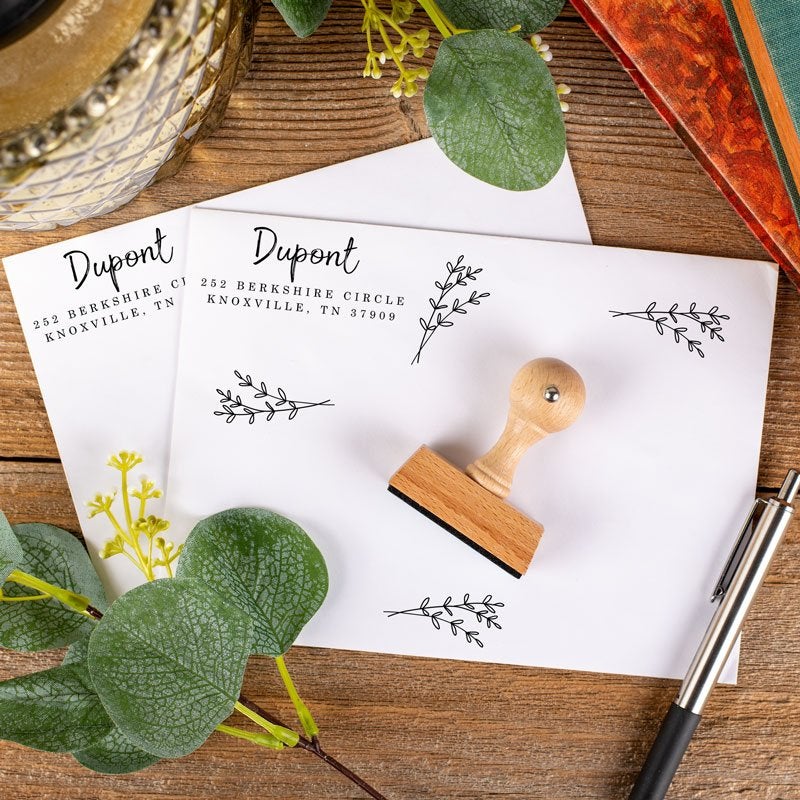 Dupont
252 BERKSHIRE CI
KNOXVILLE, TN
Dupont
252 BERKSHIRE CIRCLE
KNOXVILLE, TN 37909